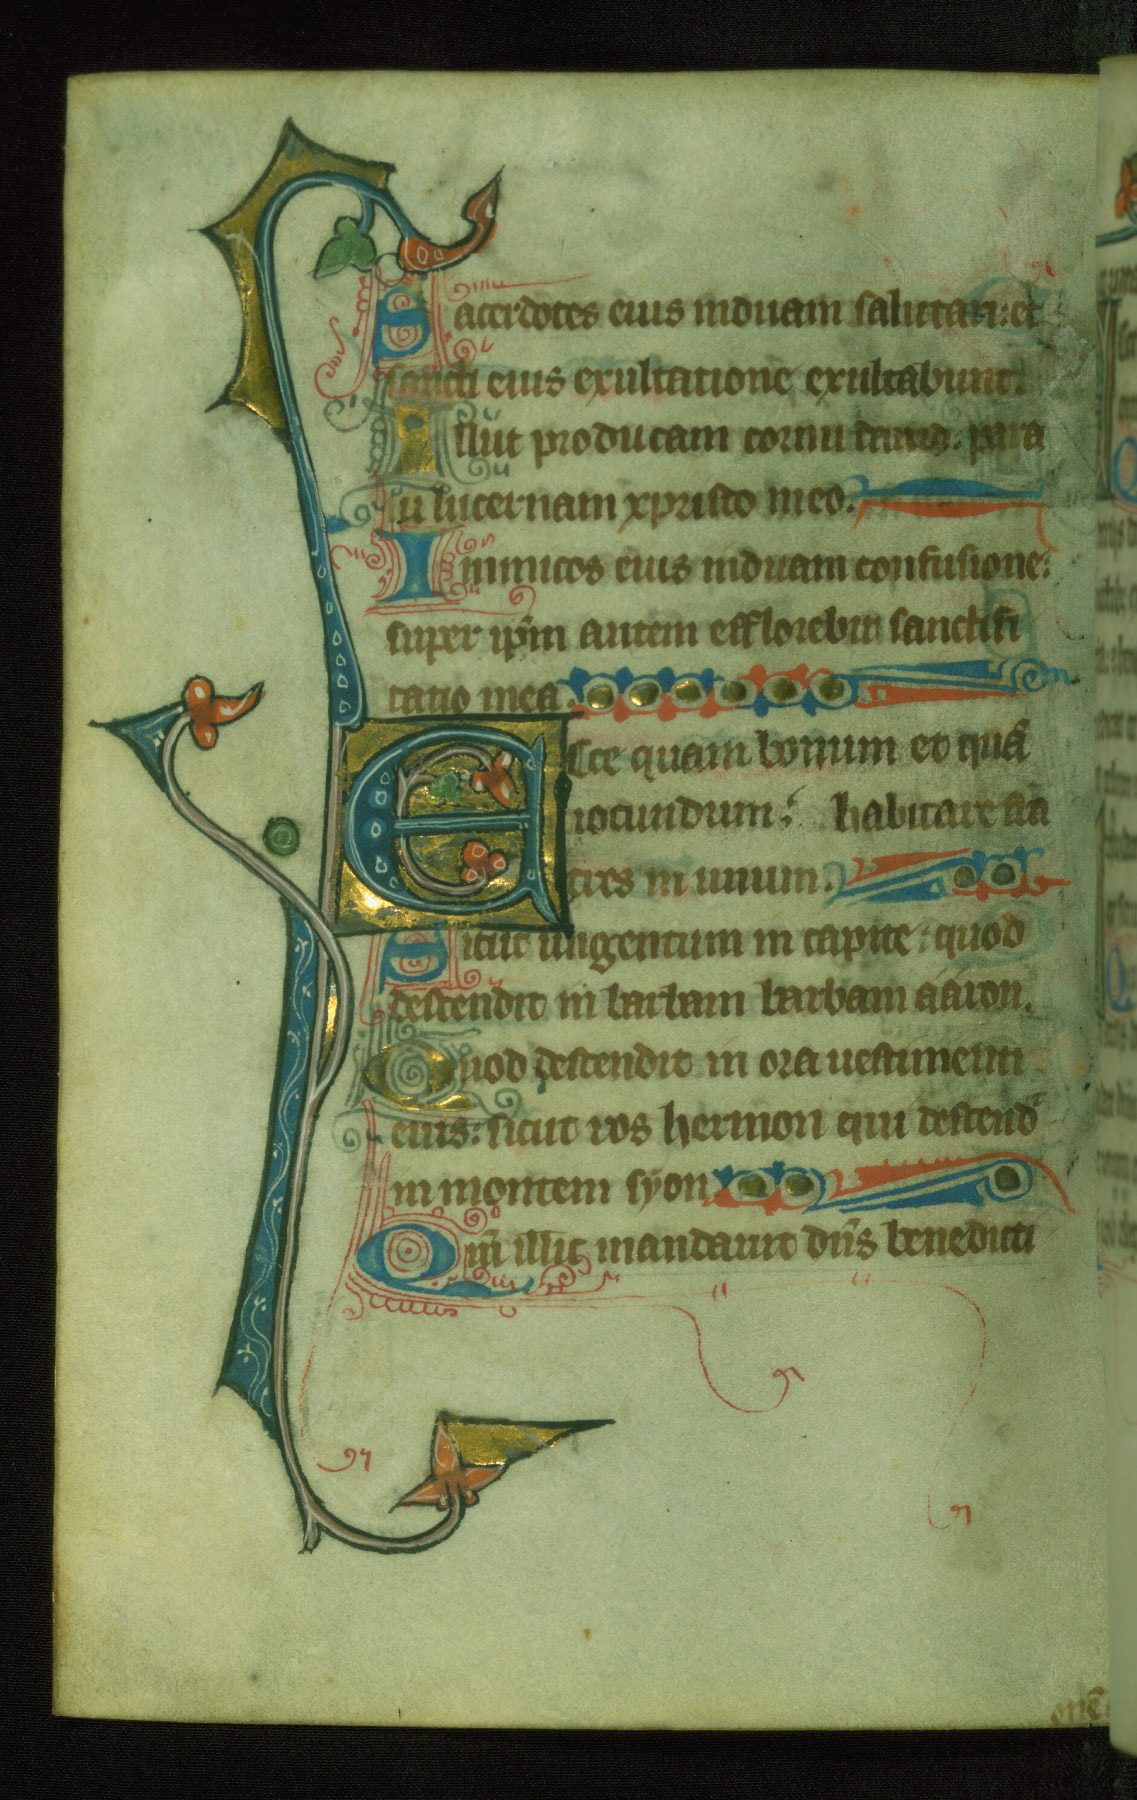 Sacerdotes eius induam salutari: et
sancti eius exultatione exultabunt.
Illuc producam cornu dauid. para
ui lucernam xpristo meo.
Inimicos eius induam confusione:
super ip̄m autem efflorebit sanctifi
catio mea.
Ecce quam bonum et quā
iocundum: habitare fra
tres in unum.
Sicut ungentum in capite: quod
descendit in barbam barbam aaron.
Quod descendit in ora uestimenti
eius: sicut ros hermon qui descend᷑
in montem syon.
Qm̄ illic mandauit dn̄s benedicti